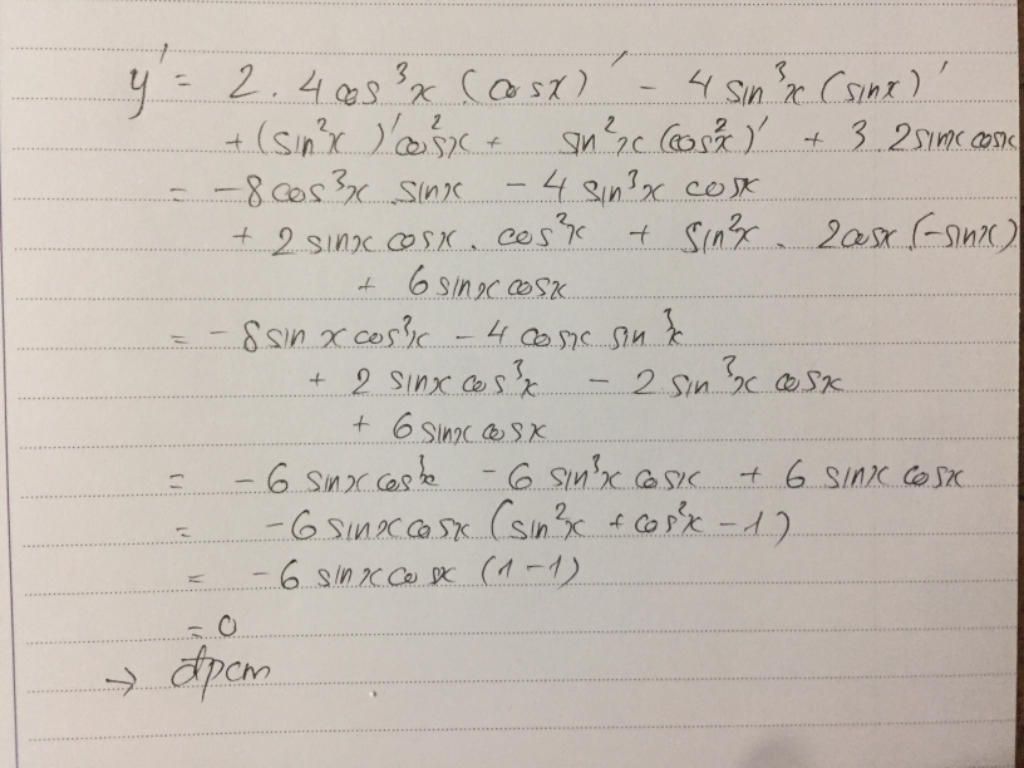 y' = 2.4cos³x (cosx)' - 4 sin³x (sinx)'
+ (sin²x)' cos²x + sin²x (cos²x)' + 3.2sinx cosx
= -8cos³x.sinx - 4 sin³x cosx
+ 2 sinx cosx. cos²x + sin²x. 2cosx.(-sinx)
+ 6 sinx cosx
= -8 sin x cos³x - 4 cosx sin³x
+ 2 sinx cos³x - 2 sin³x cosx
+ 6 sinx cosx
= -6 sinx cos³x - 6 sin³x cosx + 6 sinx cosx
= -6 sinx cosx (sin²x + cos²x - 1)
= -6 sinx cosx (1-1)
= 0
→ đpcm